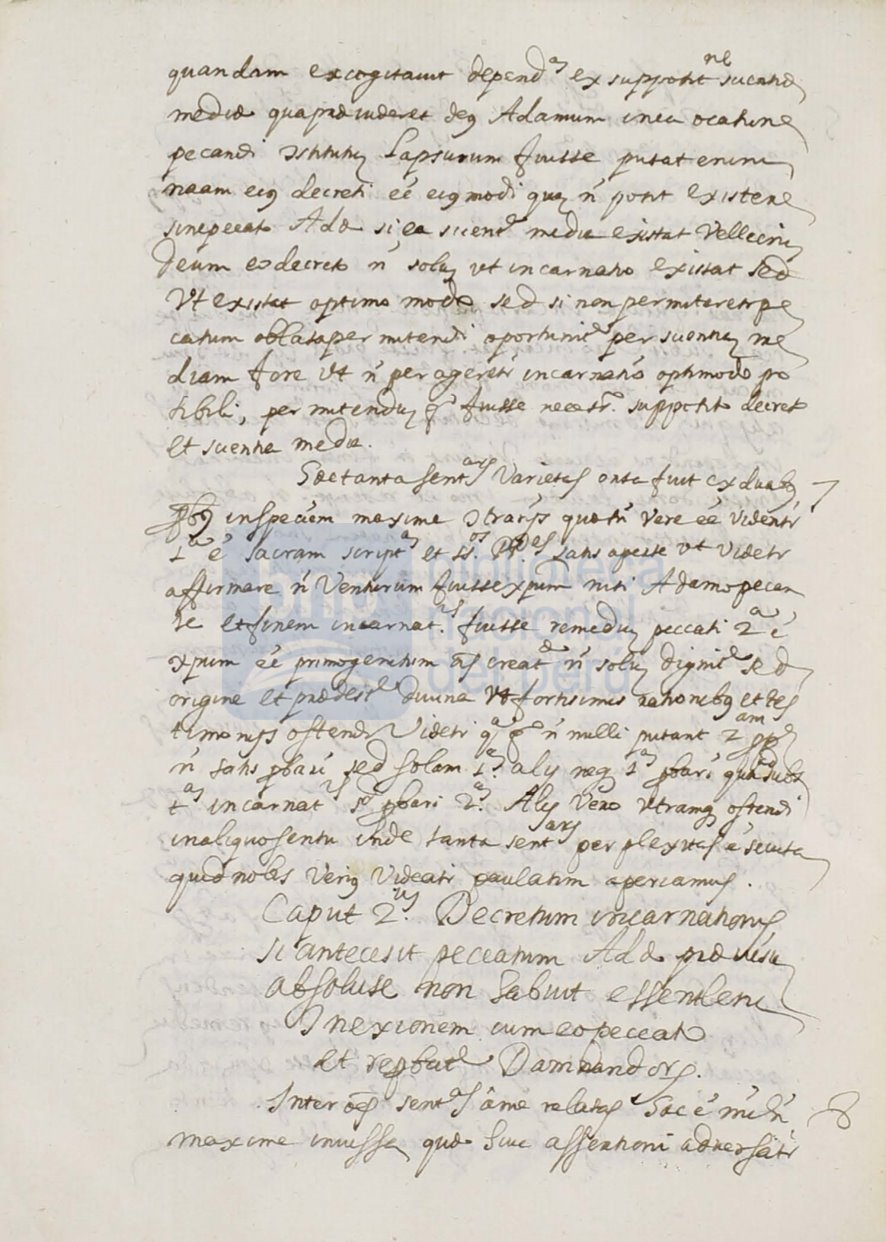 quandam excogitavit depend.ᵃᵐ ex suppositⁿᵉ scientiæ
mediæ qua prævideret deꝰ Adamum in ea ocasine
pecandi Lapsurum fuisse putat enim
naam eiꝰ decreti eé eiꝰmodi quæ ń potit existere
sine peccato Adæ si ea scientᵃ mediæ existat Velle enim
Deum eo decreto ń solum vt incarnatio existat sed
Vt existat optimo modo sed si non permiteretr pe
catum oblata permitendi oportunitᵉ per scientiam me
diam fore vt ń perageretr incarnatio optimo modo po
sibili, permitendum fuisse necesr. supposito decreto
et scientia media.
Hæc tanta sentᵃʳᵘᵐ Varietas orta fuit ex duabꝰ 7
inspeciem maxime Ↄtrarijs quæ tń vere eé videntr
1ᵃ é sacram scriptᵃᵐ et SS.ᵒˢ PP.ᵉˢ satis aperte vt videtr
affirmare ń Venturum fuisse xpum nisi Adamo pecan
te et finem incarnat.ⁱˢ fuisse remedium peccati 2ᵃ é
xpum eé primogenitum creatᵃᵉ ń solum dignitᵉ sed
origine et prædestᵉ divina vt fortisimis rationibꝰ et tes
timonijs ostendi Videtr ń nulli putant 2ᵃᵐ
ń satis pbari sed solam 1ᵃᵐ. alij neg 1ᵃᵐ pbari quoad subs
tᵃᵐ incarnatⁱˢ sed pbari 2ᵃᵐ. Alij vero vtramq ostendi
in aliquo sensu inde tanta sentᵃʳᵘᵐ perplexitas é secuta
quid nobis Veriꝰ Videatr paulatim aperiamus.
Caput 2.ᵘᵐ Decretum incarnationis
si antecesit peccatum Adæ prævisum
absolute non habuit essentialem
Ↄnexionem cum eo peccato
et repbatᵉ Damnandorum.
Inter oēs sentᵃˢ a me relatas hæc é mihi 8
maxime invissa quæ huic assertioni adversatr